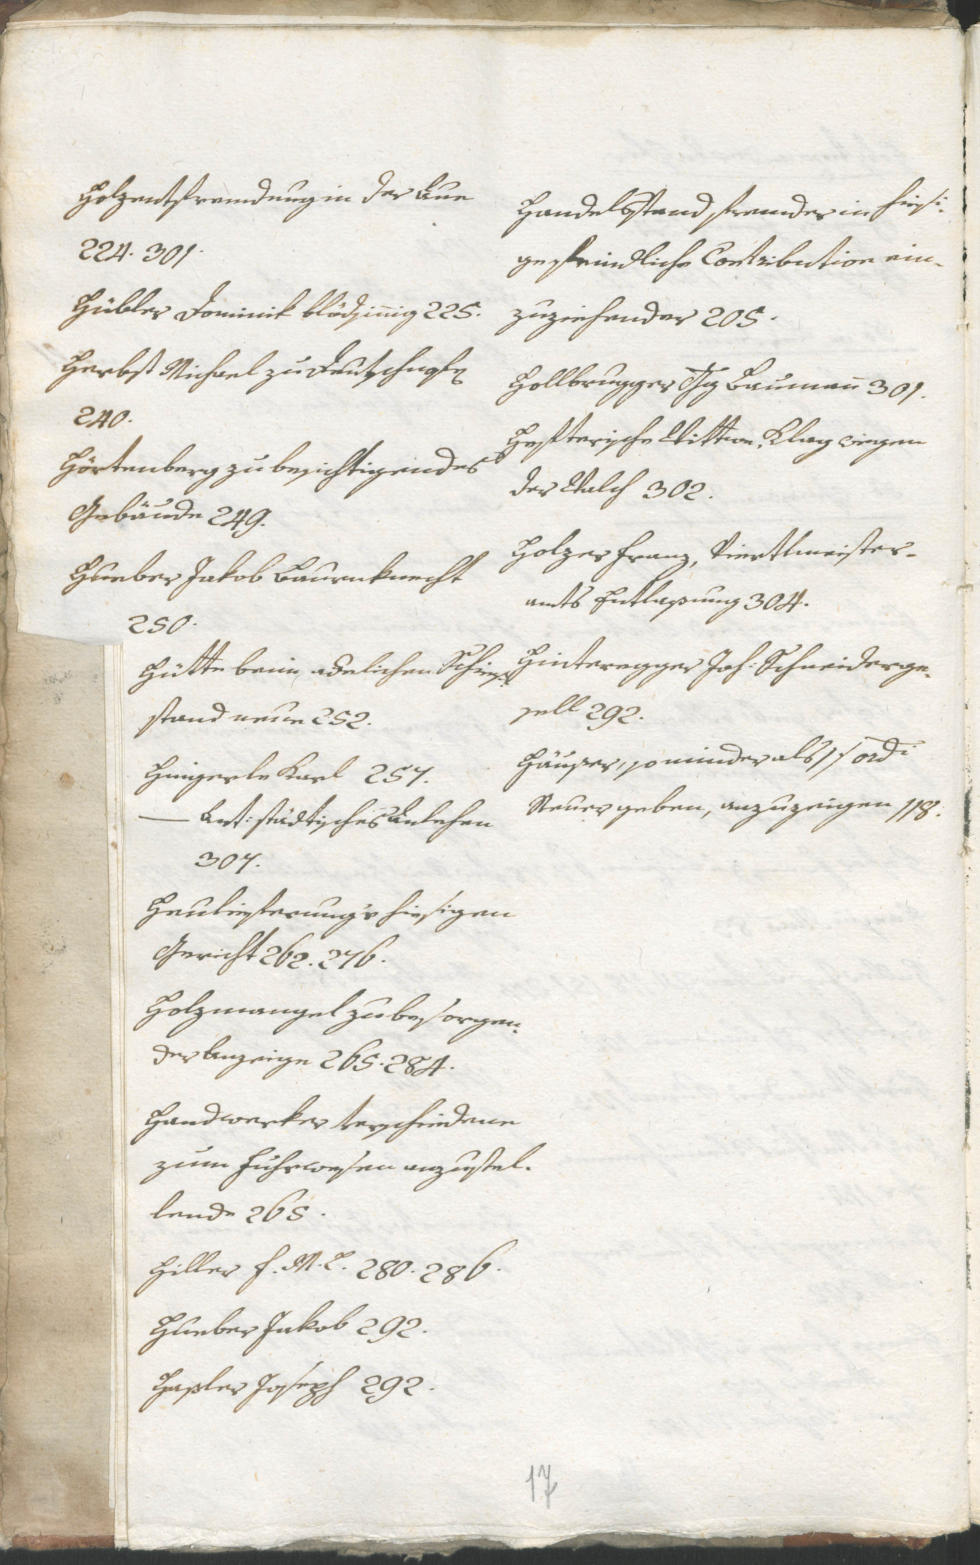 Holzentfremdung in der Aue
224. 301.
Hübler Dominik blödsinnig 225.
Herbst Michael zu
240.
Hörtenberg zu besichtigendes
Gebäude 249.
Hueber Jakob Baurnknecht
250.
Hütte beim adelichen Schieß
stand neue 252.
Hingerle Karl 257.
— Ant: städtisches Anlehen
307.
Heulieferung v hiesigen
Gericht 262. 276.
Holzmangel zu besorgen,
der Anzeige 265. 284.
Handwerker verschiedene
zum Fuhrwesen anzustel-
lende 265.
Hiller F. M. L. 280. 286.
Hueber Jakob 292.
Haßler Joseph 292.
Handelsstand fremder in hiesi-
ge feindliche Contribution ein-
zuziehender 205.
Hollbrugger Baumann 301.
Wittwe, Klag wegen
der Walch 302.
Holzer Franz, Viertlmeister-
amts Entlaßung 304.
Hinteregger Joh: Schneiderge-
sell 292.
Häußer, so minder als 1 f ordi
Steuer geben, anzuzeigen 118.
17